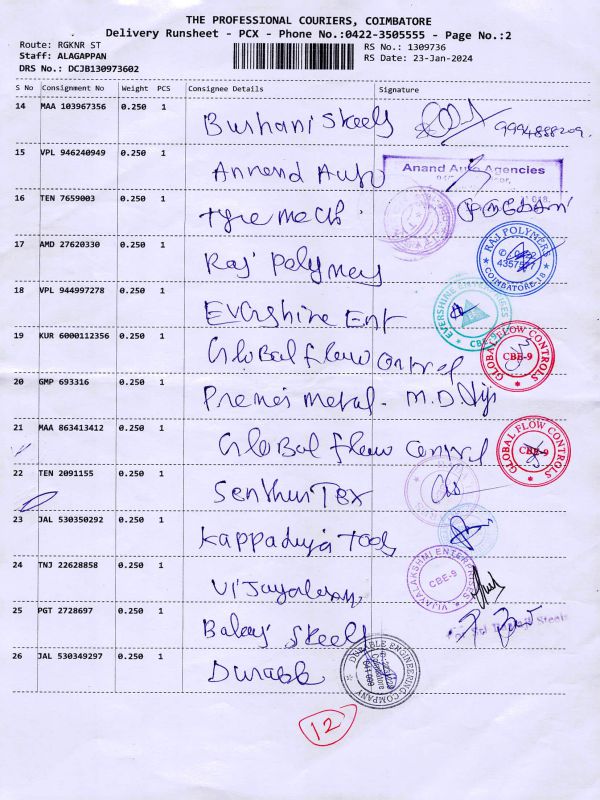 THE PROFESSIONAL COURIERS, COIMBATORE
Delivery Runsheet - PCX - Phone No.:0422-3505555 - Page No.:2
Route: RGKNR ST
RS No.: 1309736
Staff: ALAGAPPAN
RS Date: 23-Jan-2024
DRS No.: DCJB130973602
S No Consignment No Weight PCS Consignee Details Signature
14 MAA 103967356 0.250 1 Burhani Steels 9994888209.
15 VPL 946240949 0.250 1 Annend Auto Anand Auto Agencies
16 TEN 7659003 0.250 1 Tyre Mech
17 AMD 27620330 0.250 1 Raj Polymers RAJ POLYMERS COIMBATORE-18
18 VPL 944997278 0.250 1 Evershine Ent EVERSHINE CBE-9
19 KUR 6000112356 0.250 1 Global flow control GLOBAL FLOW CONTROLS CBE-9
20 GMP 693316 0.250 1 Premier metal - M.D
21 MAA 863413412 0.250 1 Global flow control GLOBAL FLOW CONTROLS CBE-9
22 TEN 2091155 0.250 1 Senthur Tex
23 JAL 530350292 0.250 1 Kappaduja Tools
24 TNJ 22628858 0.250 1 Vijayalaxmi VIJAYALAKSHMI ENTERPRISES CBE-9
25 PGT 2728697 0.250 1 Balaji Steels Sri Balaji Steels
26 JAL 530349297 0.250 1 Durable DURABLE ENGINEERING COMPANY
12